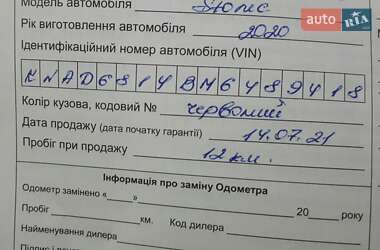 Модель автомобіля Stonic
auto RIA
Рік виготовлення автомобіля 2020
Ідентифікаційний номер автомобіля (VIN)
KNAD6814BM6489418
Колір кузова, кодовий № червоний
Дата продажу (дата початку гарантії) 14.07.21
Пробіг при продажу 12 км.
Інформація про заміну Одометра
Одометр замінено «____» ____ 20____ року
Пробіг ____ км. Код дилера
Найменування дилера